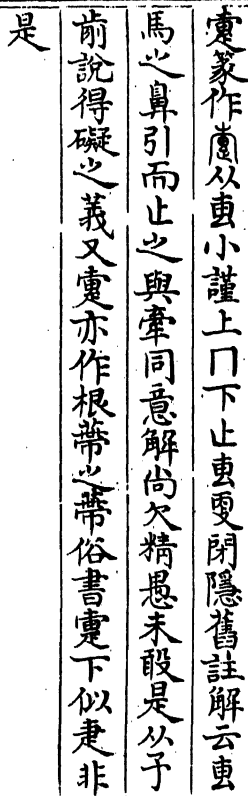 疐篆作𤴡从叀小謹上冂下止叀叓閉隱舊註解云叀
馬之鼻引而止之與牽同意解尚欠精愚未敢是从子
前說得礙之義又疐亦作根蔕之蔕俗書疐下似疌非
是